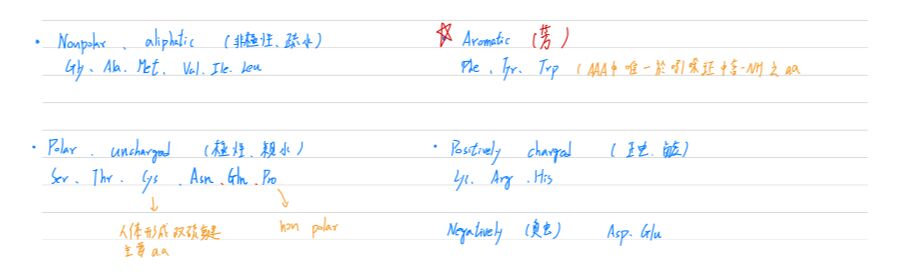 • Nonpolar、aliphatic (非極性、疏水)
Gly、Ala、Met、Val、Ile、Leu
☆ Aromatic (芳)
Phe、Tyr、Trp (AAA中唯一於吲哚環中含-NH之aa
• Polar、uncharged (極性、親水)
Ser、Thr、Cys、Asn、Gln、Pro
人体形成双硫鍵
主要aa
non polar
• Positively charged (正电、鹼)
Lys、Arg、His
Negatively (負电) Asp、Glu